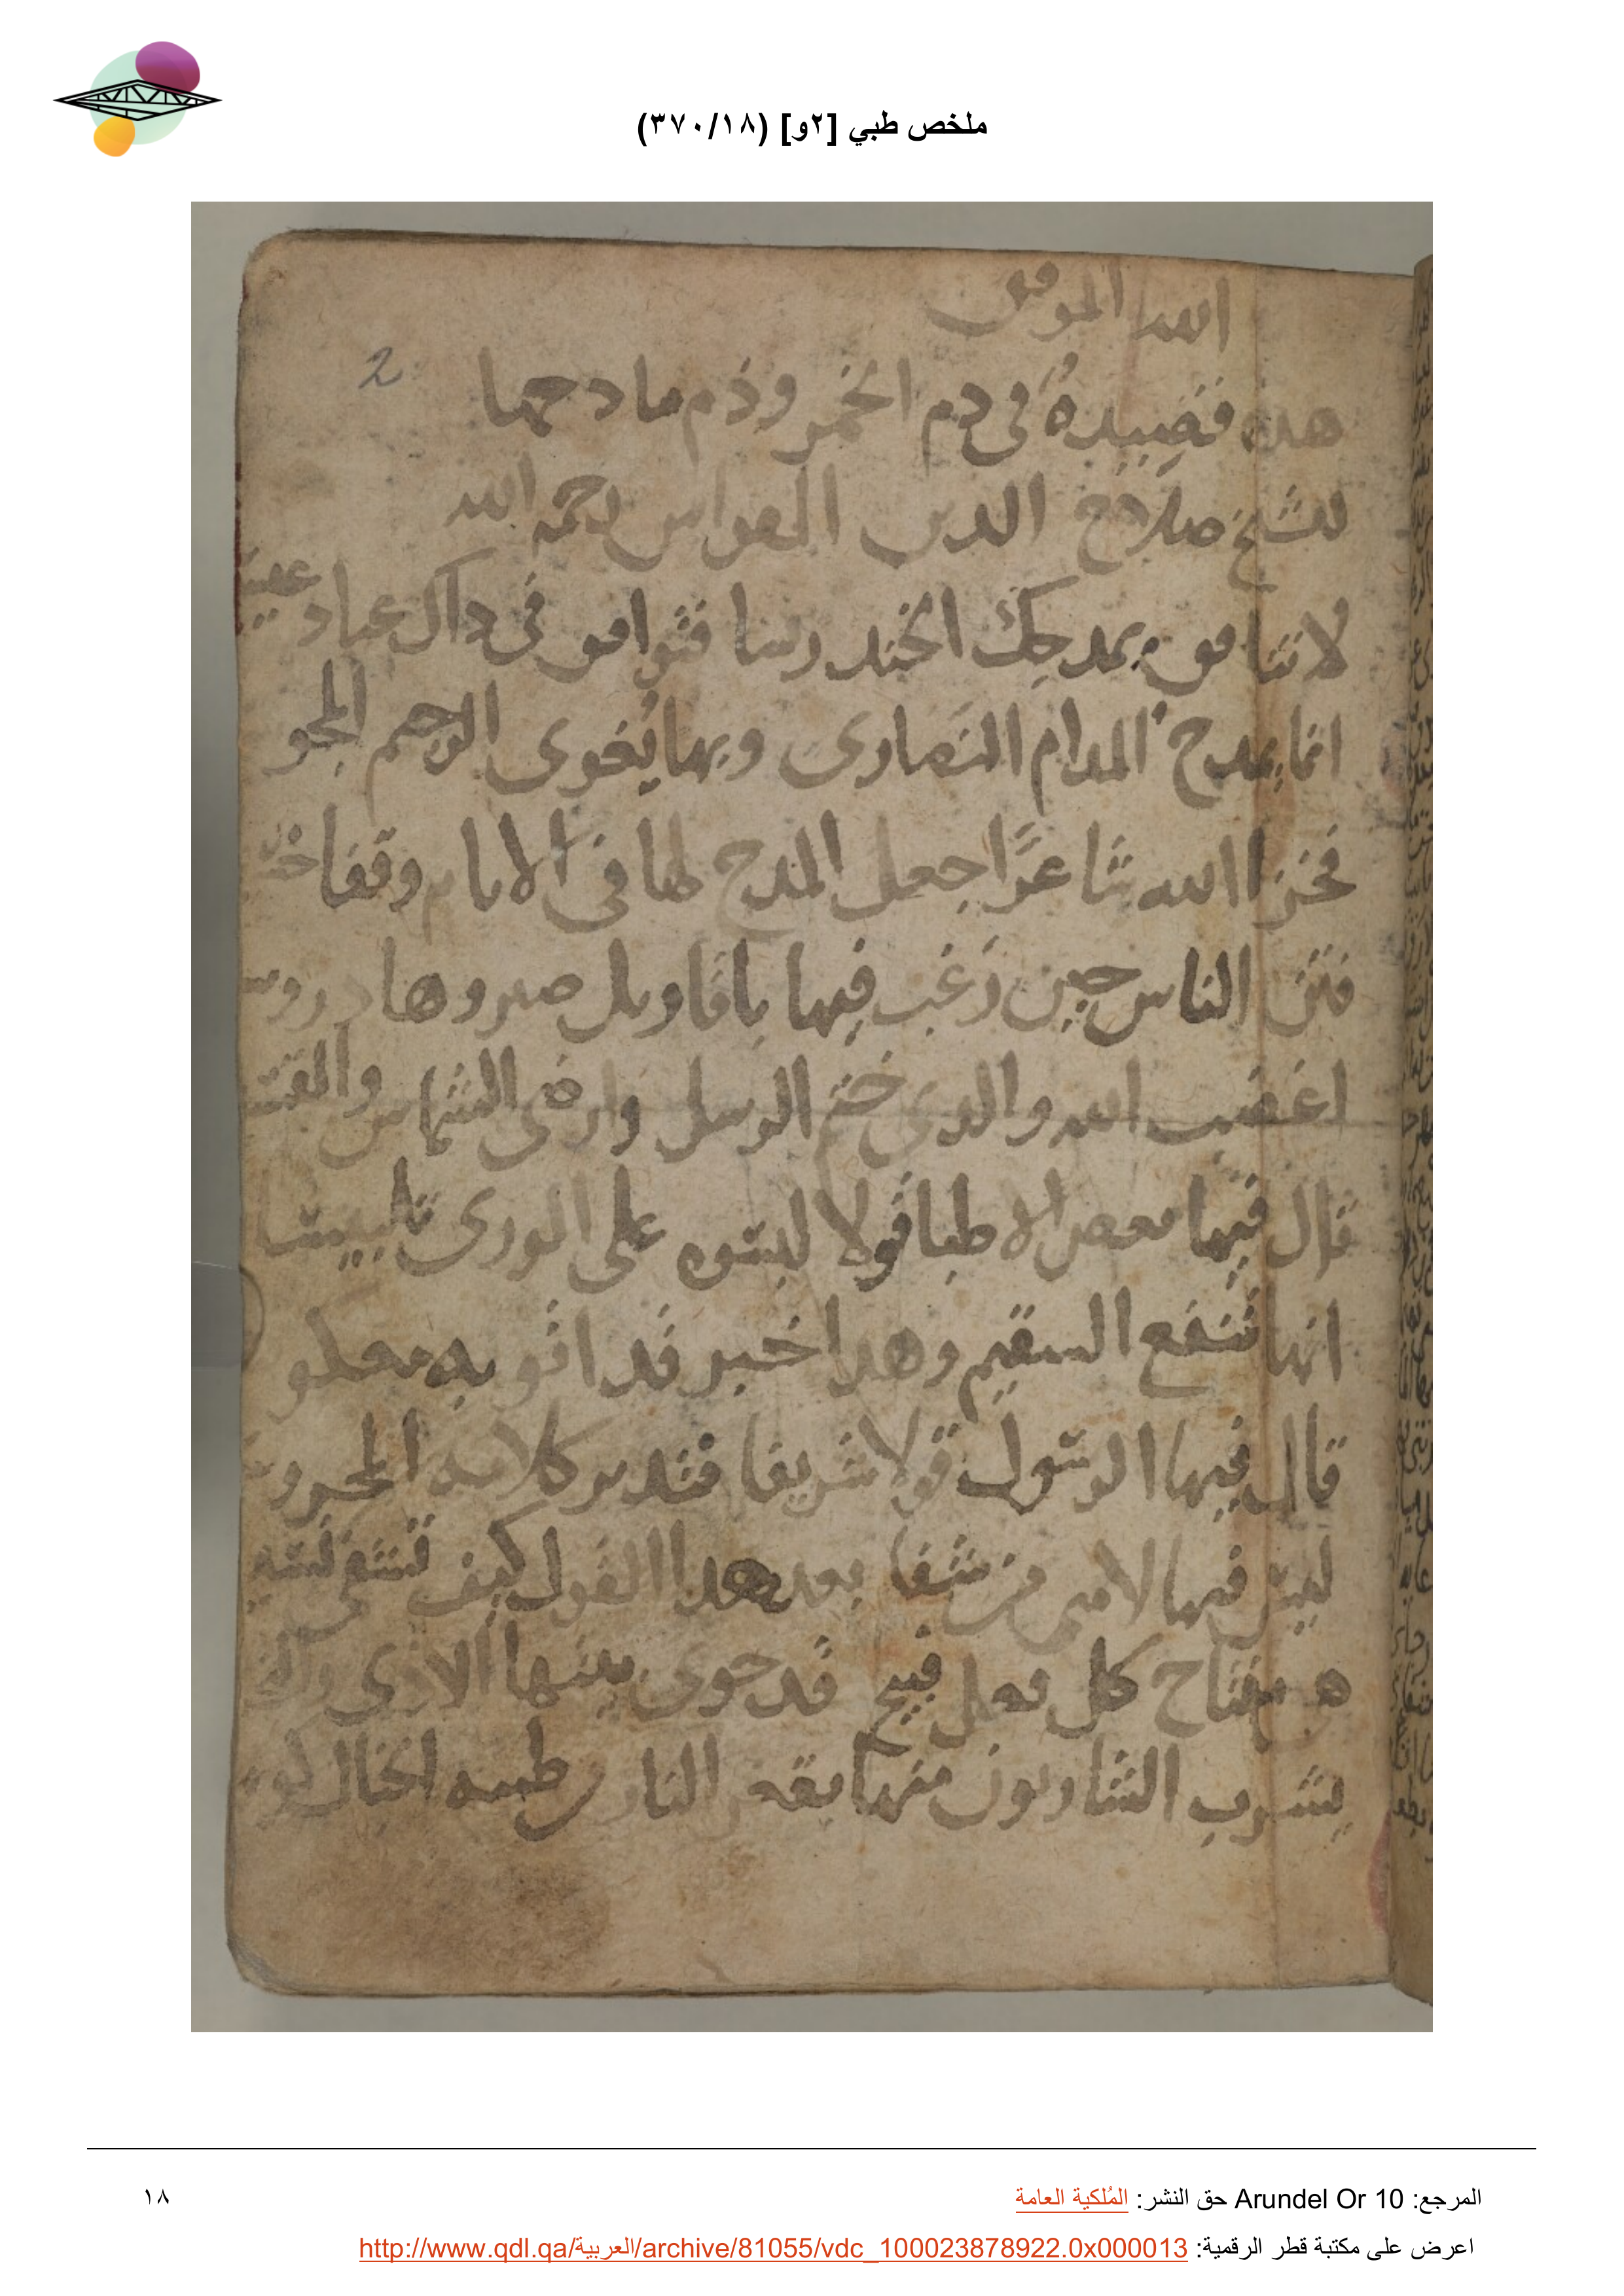 ملخص طبي [٢و] (٣٧٠/١٨)
الله الموفق
2
هذه قصيدة في دم الخمر وذم مادحها
لشيخ صلاح الدين القواس رحمه الله
لا تنافق بمدحك الخندريسا فتوافق في دال عباد
انما يمدح المدام النصارى وبها يُغوى الرجيم المجو
فخزا الله شاعرًا جعل المدح لها في الانام وقفا
فتن الناس حين رغب فيها باقاويل صيروها دروس
اغضب الله والدي ختم الرسل وارضى الشماس والقس
قال فيها بعض الاطبا قولا لبسوه على الورى تلبيسا
انها تنفع السقيم وهدا خبر قد اتو به معكو
قال فيها الرسول قولا شريفا فتدبر كلامه المحرو
ليس فيها لامتي من شفا بعد هدا القول كيف تشفى
هو مفتاح كل فعل قبيح قد حوى بينها الادى
يشرب الشاربون منها بقعر النار طينة الخال
المرجع: Arundel Or 10 حق النشر: المُلكية العامة
١٨
اعرض على مكتبة قطر الرقمية: http://www.qdl.qa/العربية/archive/81055/vdc_100023878922.0x000013